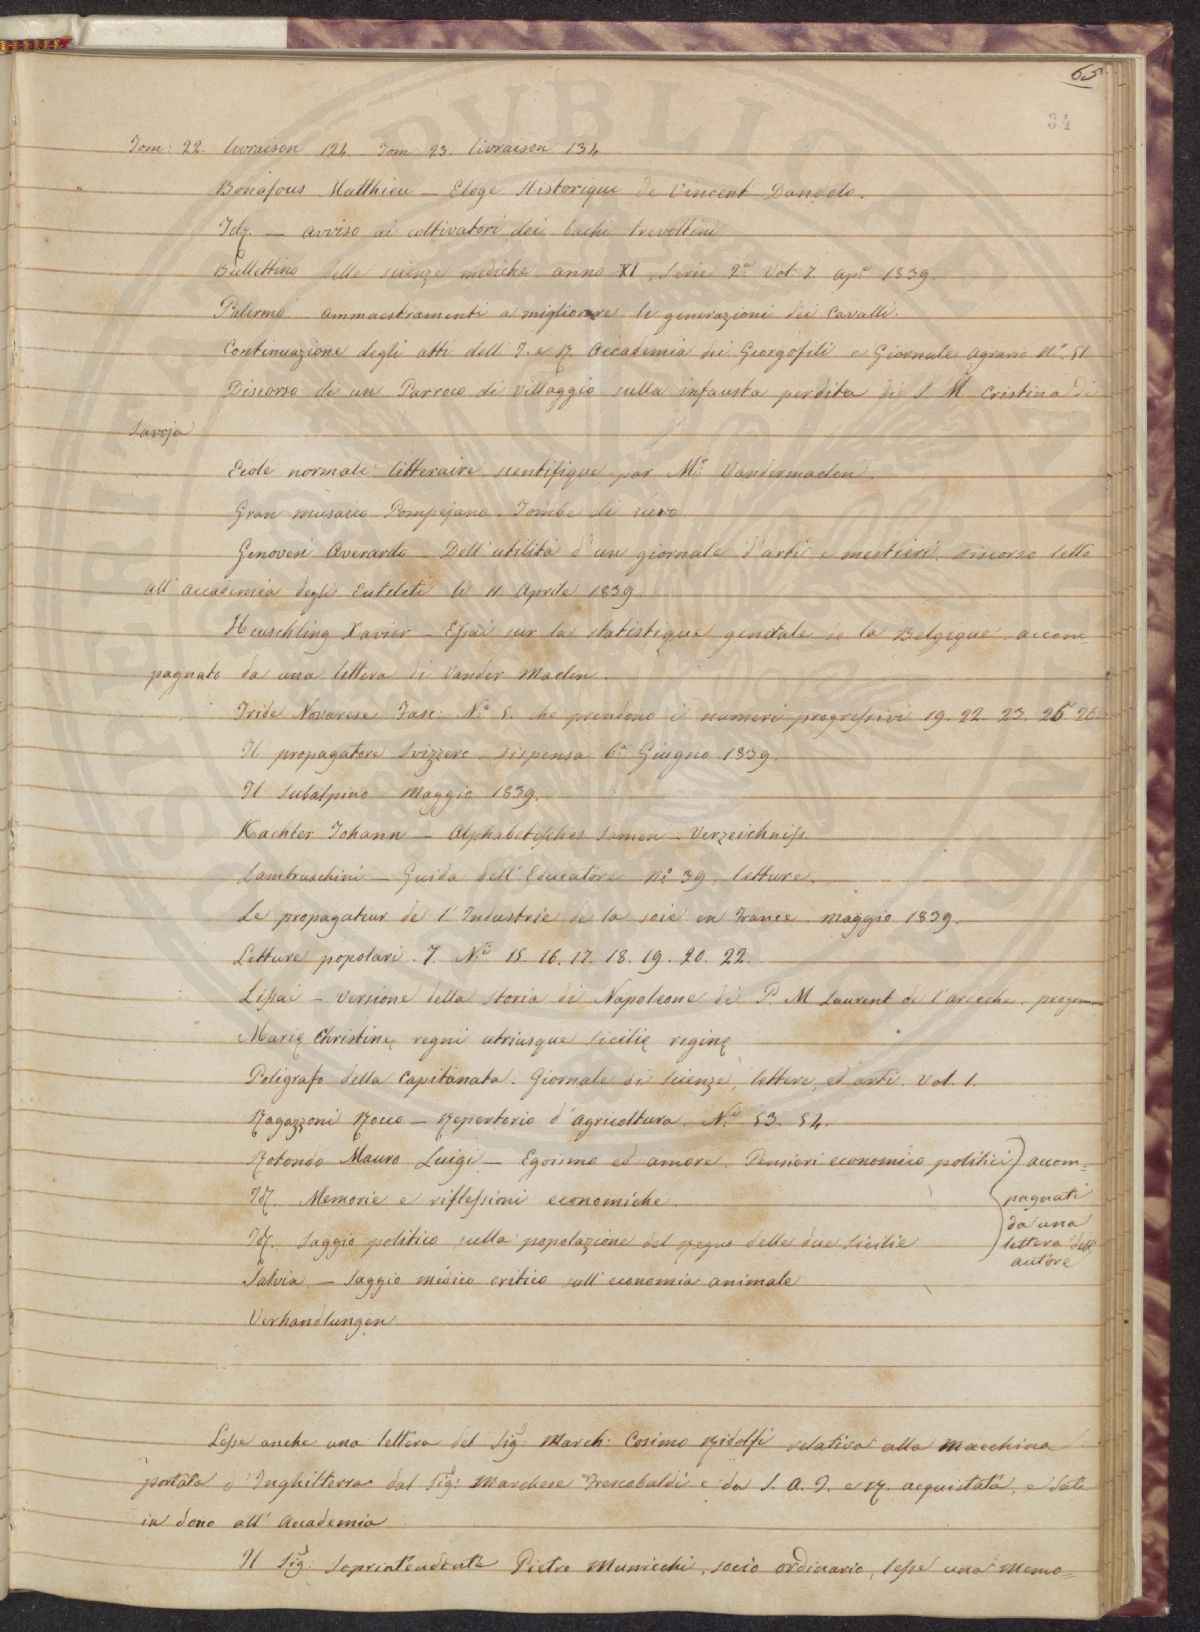 65
34
Tom: 22. livraison 124 Tom: 23. livraison 134
Bonafous Matthieu — Eloge Historique de Vincent Dandolo.
Id. — avviso ai coltivatori dei bachi trevoltini
Bullettino delle scienze mediche anno XI, Serie 2a Vol. 7 Ape 1839.
Palermo ammaestramenti a migliorare le generazioni dei Cavalli.
Continuazione degli atti dell' I. e R. Accademia dei Georgofili e Giornale agrario No. 51
Discorso di un Parroco di Villaggio sulla infausta perdita di S M Cristina di
Savoja
Ecole normale litteraire scentifique par Mr. Vandermaelen.
Gran musaico Pompejano. Tombe di ruvo
Genovesi Averardo — Dell' utilità d'un giornale d'arti e mestieri discorso letto
all' accademia degli Euteleti li 11. Aprile 1839.
Heuschling Xavier — Essai sur la statistique generale de la Belgique accom-
pagnato da una lettera di Vander Maelen.
Iride Novarese Fasc: No. 5. che prendono i numeri progressivi 19. 22. 23. 25 26.
Il propagatore Svizzero. dispensa 6a Giugno 1839.
Il subalpino Maggio 1839.
Kachler Johann — Alphabetisches Samen-Verzeichniss.
Lambruschini — Guida dell' Educatore No. 39, letture.
Le propagateur de l'Industrie de la soie en France. maggio 1839.
Letture popolari. 7. Ni 15 16. 17. 18. 19. 20. 22.
Lissai — versione della storia di Napoleone di P. M Laurent de l'ardeche. programma
Marię Christinę regni utriusque Sicilię reginę
Poligrafo della Capitanata. Giornale di scienze, lettere, ed arti. Vol. 1.
Ragazzoni Rocco — Repertorio d'agricoltura. Ni 53. 54.
Rotondo Mauro Luigi — Egoismo ed amore. Pensieri economico politici) accom=
Id. Memorie e riflessioni economiche. pagnati
da una
Id. Saggio politico sulla popolazione del regno delle due Sicilie lettera dell'
autore
Salvia — Saggio medico critico sull' economia animale
Verhandlungen
Lesse anche una lettera del Sig: March: Cosimo Ridolfi relativa alla macchina
portata d'Inghilterra dal Sig: Marchese Frescobaldi e da S. A. I. e R. acquistata, e data
in dono all' Accademia
Il Sig: Soprintendente Pietro Municchi, socio ordinario, lesse una memo=